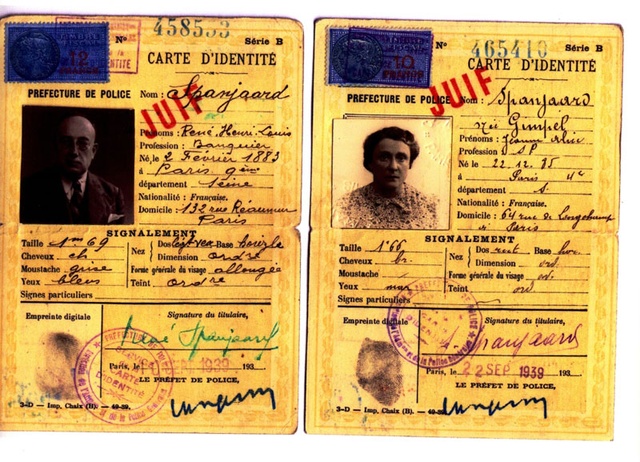 Nº 458553
Série B
12
CARTE D'IDENTITÉ
PREFECTURE DE POLICE
JUIF
Nom: Spanjaard
Prénoms: René Henri Louis
Profession: Banquier
Né, le 2 Février 1883
à Paris 9ème
département Seine
Nationalité: Française.
Domicile: 132 rue Réaumur
Paris
SIGNALEMENT
Taille 1m 69
Cheveux ch
Moustache grise
Yeux bleus
Signes particuliers
Nez
Dos Base
Dimension ordre
Forme générale du visage allongée
Teint ordre
Empreinte digitale
Signature du titulaire,
René Spanjaard
Paris, le 1939 193
LE PRÉFET DE POLICE,
SERVICE
CARTE
D'IDENTITÉ
3-D - Imp. Chaix (B). - 49-39.
Nº 465410
Série B
10
CARTE D'IDENTITÉ
PREFECTURE DE POLICE
JUIF
Nom: Spanjaard
née Gimpel
Prénoms:
Profession SP
Né le 22.12.85
à Paris
département S.
Nationalité: Française.
Domicile: 64 rue de Longchamp
à Paris
SIGNALEMENT
Taille 1m66
Cheveux br.
Moustache
Yeux mar
Signes particuliers
Nez
Dos rect Base
Dimension ord.
Forme générale du visage ov.
Teint ord
Empreinte digitale
Signature du titulaire,
Spanjaard
Paris, le 22 SEP 1939 193
LE PRÉFET DE POLICE,
3-D - Imp. Chaix (B). - 49-39.